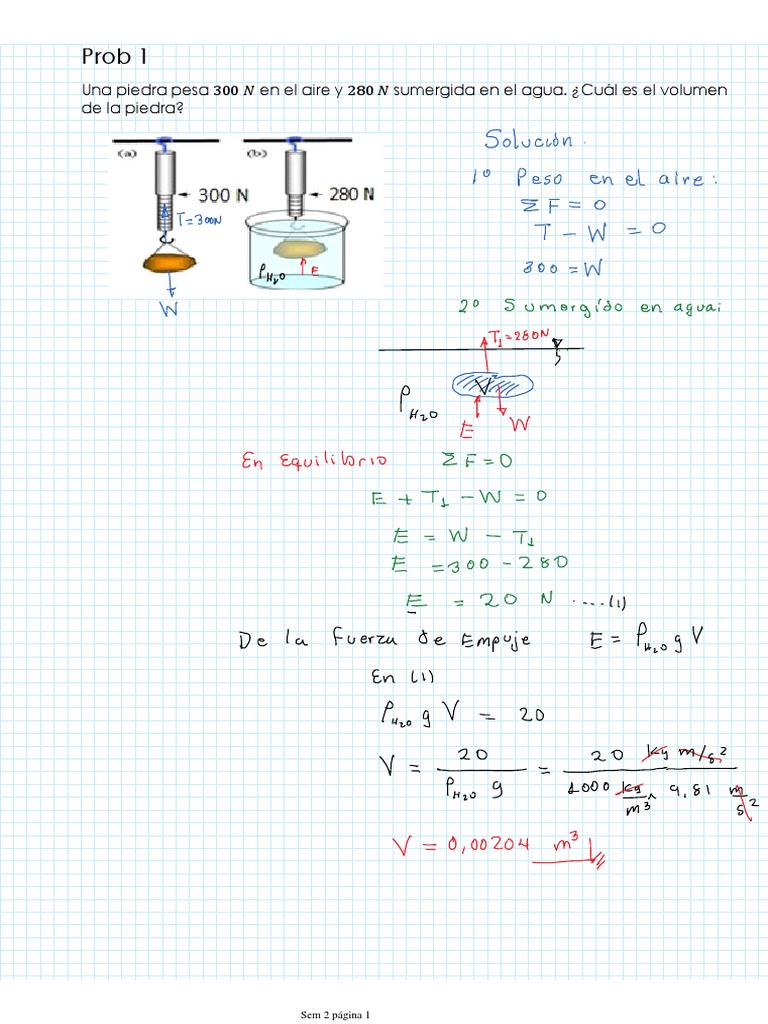 Prob 1
Una piedra pesa 300 N en el aire y 280 N sumergida en el agua. ¿Cuál es el volumen
de la piedra?
(a)
300 N
T=300N
W
(b)
280 N
ρH₂O
E
Solución.
1º Peso en el aire:
ΣF = 0
T - W = 0
300 = W
2º Sumergido en agua:
T₁=280N
V
ρH₂O
E
W
En Equilibrio ΣF=0
E + T₁ - W = 0
E = W - T₁
E = 300 - 280
E = 20 N ....(1)
De la Fuerza de Empuje E = ρH₂O g V
En (1)
ρH₂O g V = 20
V = 20 / ρH₂O g = 20 kg m/s² / 1000 kg/m³ × 9,81 m/s²
V = 0,00204 m³
Sem 2 página 1